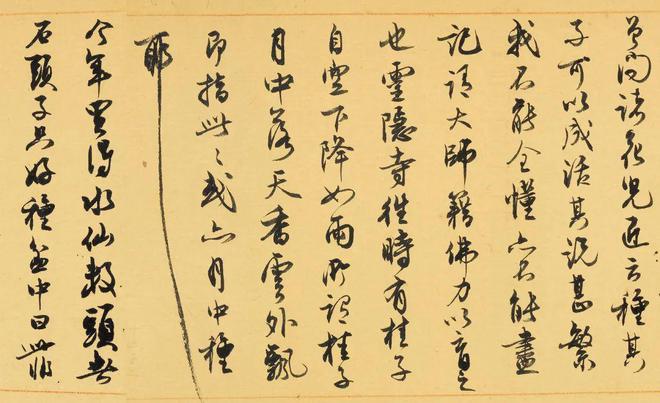 曾问諸花兒匠云種其
子可以成活其説甚繁
我不能全懂亦不能盡
記請大師籍佛力以育之
也靈隱寺往時有桂子
自空下降如雨所謂桂子
月中落天香雲外飄
即指此〻或亦月中種
耶
今年買得水仙數頭皆
石頭子只好種盆中曰此